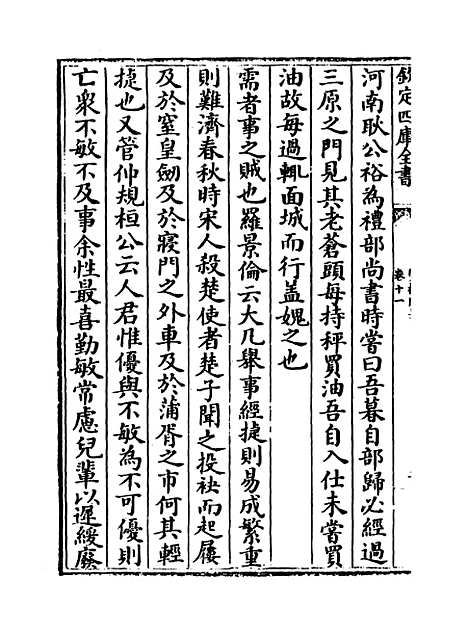 欽定四庫全書
卷十一
河南耿公裕為禮部尚書時嘗曰吾暮自部歸必經過
三原之門見其老蒼頭每持秤買油吾自入仕未嘗買
油故每過輒面城而行盖媿之也
需者事之賊也羅景倫云大凡舉事經捷則易成繁重
則難濟春秋時宋人殺楚使者楚子聞之投袂而起屨
及於窒皇劒及於寢門之外車及於蒲胥之市何其輕
捷也又管仲規桓公云人君惟優與不敏為不可優則
亡衆不敏不及事余性最喜勤敏常慮兒輩以遲緩廢